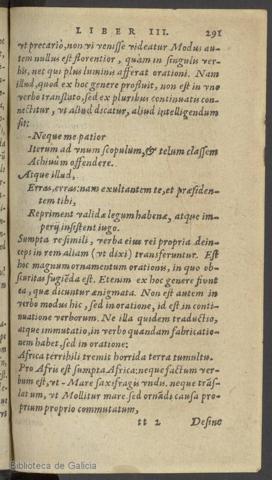 LIBER III. 291
vt precariò, non vi venisse videatur Modus au-
tem nullus est florentior, quam in singulis ver-
bis, nec qui plus luminis afferat orationi. Nam
illud, quod ex hoc genere profluit, non est in vno
verbo translato, sed ex pluribus continuatis con-
nectitur, vt aliud dicatur, aliud intelligendum
sit:
-Neque me patior
Iterum ad vnum scopulum, & telum classem
Achiuûm offendere.
Atque illud,
Erras, erras: nam exultantem te, et præfiden-
tem tibi,
Repriment validæ legum habenæ, atque im-
perij insistent iugo.
Sumpta re simili, verba eius rei propria dein-
ceps in rem aliam (vt dixi) transferuntur. Est
hoc magnum ornamentum orationis, in quo obs-
curitas fugiẽda est. Etenim ex hoc genere fiunt
ea, quæ dicuntur ænigmata. Non est autem in
verbo modus hic, sed in oratione, id est, in conti-
nuatione verborum. Ne illa quidem traductio,
atque immutatio, in verbo quandam fabricatio-
nem habet, sed in oratione:
Africa terribili tremit horrida terra tumultu.
Pro Afris est sumpta Africa: neque factum ver-
bum est, vt - Mare saxifragis vndis. neque trãs-
latum, vt Mollitur mare. sed ornãdi causa pro-
prium proprio commutatum,
tt 2 Desine
Biblioteca de Galicia